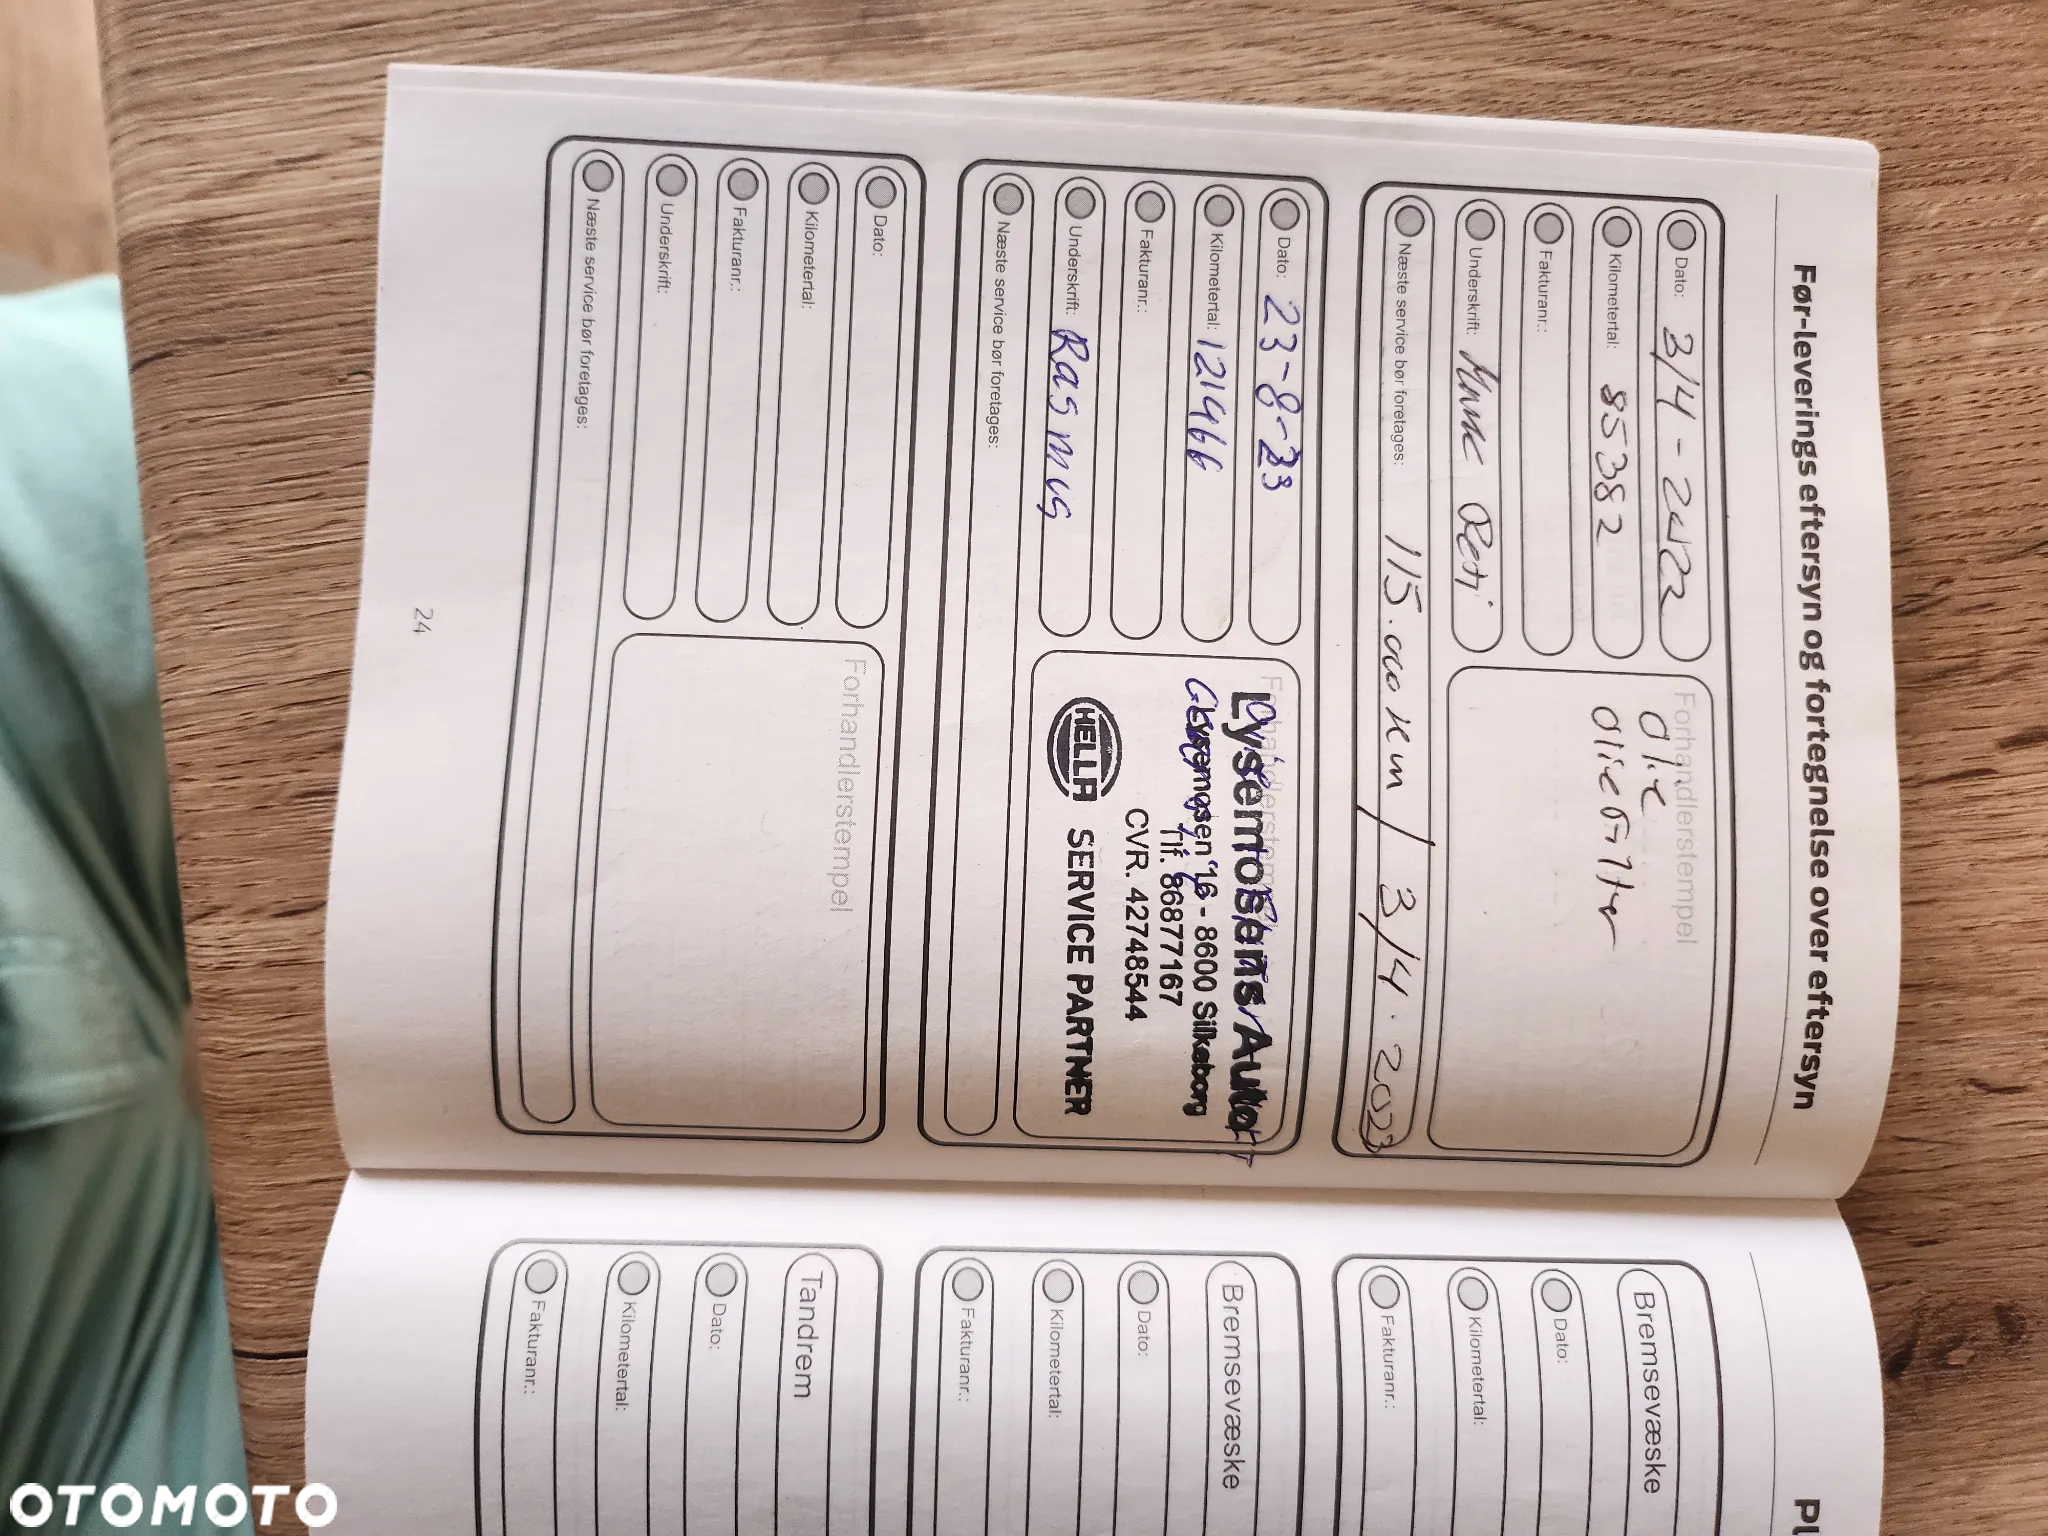 Før-leverings eftersyn og fortegnelse over eftersyn
Dato: 3/4-2022
Kilometertal: 85382
Fakturanr.:
Underskrift:
Næste service bør foretages: 115.000 km / 3/4.2023
Forhandlerstempel
olie
oliefilter
Dato: 23-8-23
Kilometertal: 121466
Fakturanr.:
Underskrift: Rasmus
Næste service bør foretages:
Forhandlerstempel
Lysemosens Auto
Lysemosen 16 - 8600 Silkeborg
Tlf. 86877167
CVR. 42748544
HELLA SERVICE PARTNER
Dato:
Kilometertal:
Fakturanr.:
Underskrift:
Næste service bør foretages:
Forhandlerstempel
24
Bremsevæske
Dato:
Kilometertal:
Fakturanr.:
Bremsevæske
Dato:
Kilometertal:
Fakturanr.:
Tandrem
Dato:
Kilometertal:
Fakturanr.:
OTOMOTO